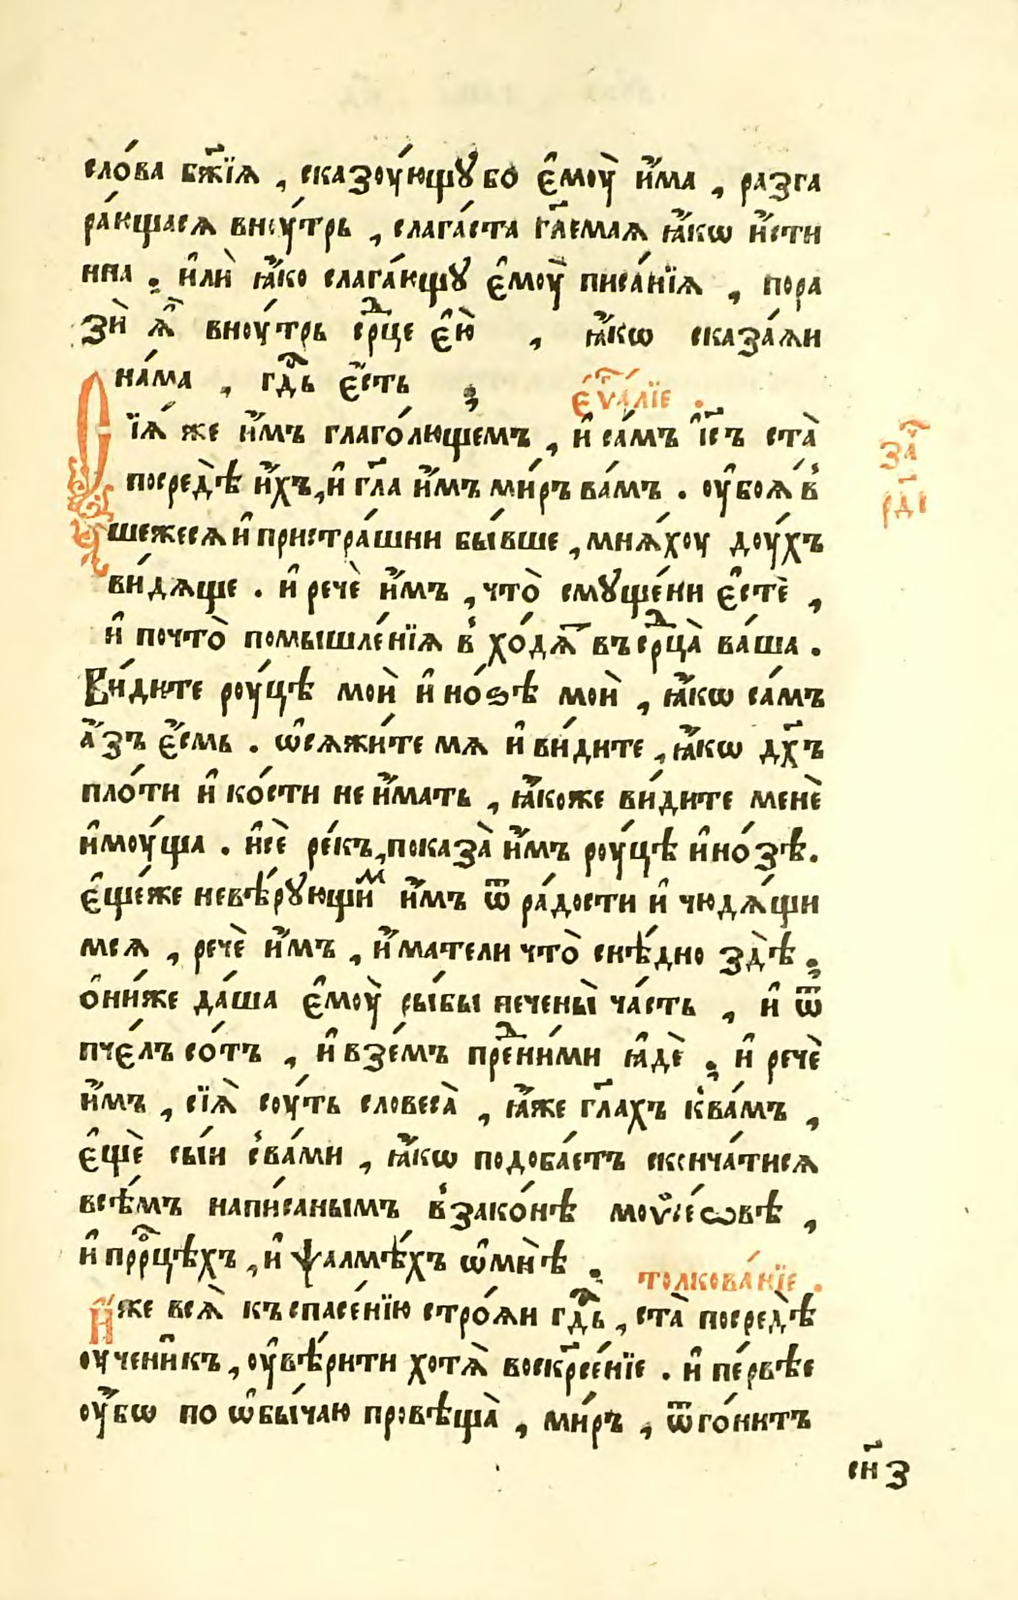 сло́ва бж҃їѧ , сказоу́ющꙋ бо є҆моу̀ и҆́ма , разга
ра́ющасѧ вноу́трь , слага́ста гл҃емаѧ ꙗ҆́кѡ и҆́сти
нна . и҆лѝ ꙗ҆́ко слага́ющꙋ є҆моу̀ писа́нїѧ , пора
зѝ ѧ҆̀ вноу́трь срⷣце є҆ю̀ , ꙗ҆́кѡ сказа́ѧи
на́ма , гдⷭ҇ь є҆́сть ;
є҆ѵⷢ҇а́лїе .
Сїѧ́ же и҆́мъ глаго́лющемъ , и҆ са́мъ і҆с҃ъ ста̀
посредѣ̀ и҆́хъ , и҆ гл҃а и҆́мъ ми́ръ ва́мъ . оу҆боѧ́в
шежесѧ и҆ пристра́шни бы́вше , мнѧ́хоу доу́хъ
ви́дѧще . и҆ речѐ и҆́мъ , что̀ смꙋще́ни є҆стѐ ,
и҆ почто̀ помышле́нїѧ в хо́дѧⷮ въ срⷣца̀ ва́ша .
Ви́дите роу́цѣ моѝ и҆ но́ѕѣ моѝ , ꙗ҆́кѡ са́мъ
а҆́зъ є҆́смь . ѡ҆сѧжи́те мѧ и҆ ви́дите , ꙗ҆́кѡ дх҃ъ
пло́ти и҆ ко́сти не и҆́мать , ꙗ҆́коже ви́дите менѐ
и҆моу́ща . и҆ сѐ ре́къ , показа̀ и҆́мъ роу́цѣ и҆ но́зѣ .
є҆ще́же невѣ́рꙋющиⷨ и҆́мъ ѿ ра́дости и҆ чюдѧ́щи
мсѧ , речѐ и҆́мъ , и҆́матели что̀ снѣ́дно здѣ̀ ;
ѻ҆ни́же да́ша є҆моу̀ ры́бы печены̀ ча́сть , и҆ ѿ
пче́лъ со́тъ , и҆ взе́мъ преⷣни́ми ꙗ҆дѐ ; и҆ речѐ
и҆́мъ , сїѧ̀ соу́ть словеса̀ , ꙗ҆́же гл҃ахъ к ва́мъ ,
є҆щѐ сы́и с ва́ми , ꙗ҆́кѡ подоба́етъ сконча́тисѧ
всѣ́мъ напи́санымъ в зако́нѣ моѵ̈се́ѡвѣ ,
и҆ прⷪ҇рцѣхъ , и҆ ѱалмѣ́хъ ѡ҆ мнѣ̀ .
толкова́нїе .
И҆́же всѧ̀ къ спасе́нїю стро́ѧи гдⷭ҇ь , ста̀ посредѣ̀
оу҆чени́къ , оу҆вѣ́рити хотѧ̀ воскр҃се́нїе . и҆ пе́рвѣе
оу҆́бѡ по ѡ҆бы́чаю провѣща̀ , ми́ръ , ѿго́нитъ
за҃
рд҃і
сн҃з